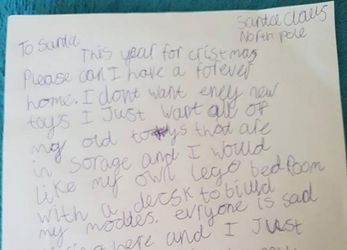 Santa Claus
North pole
To Santa
This year for cristmas
Please can I have a forever
home. I dont want eney new
toys I Just want all of
my old toys that are
in Sorage and I would
like my own lego bedroom
with a decsk to biuld
my moddes. evryone is sad
here and I Just